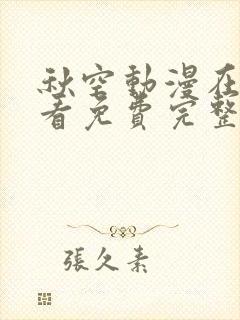 秋空動漫在
看免費完整
張久素